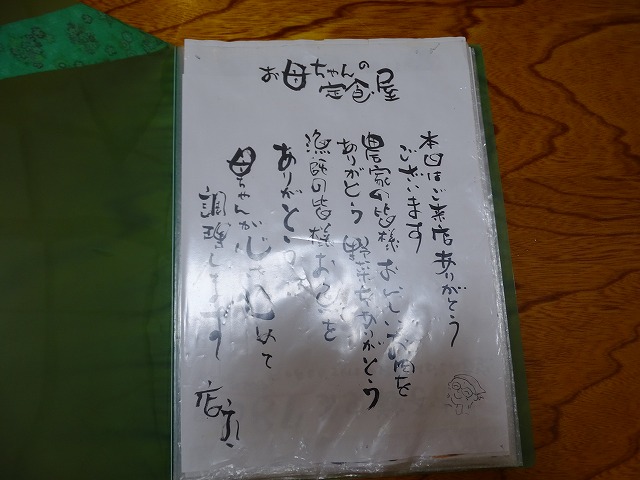 お母ちゃんの
定食屋
本日はご来店ありがとう
ございます
農家の皆様おいしいお肉を
ありがとう 野菜をありがとう
漁師の皆様お魚を
ありがとう
母ちゃんが心をこめて
調理してます
店主